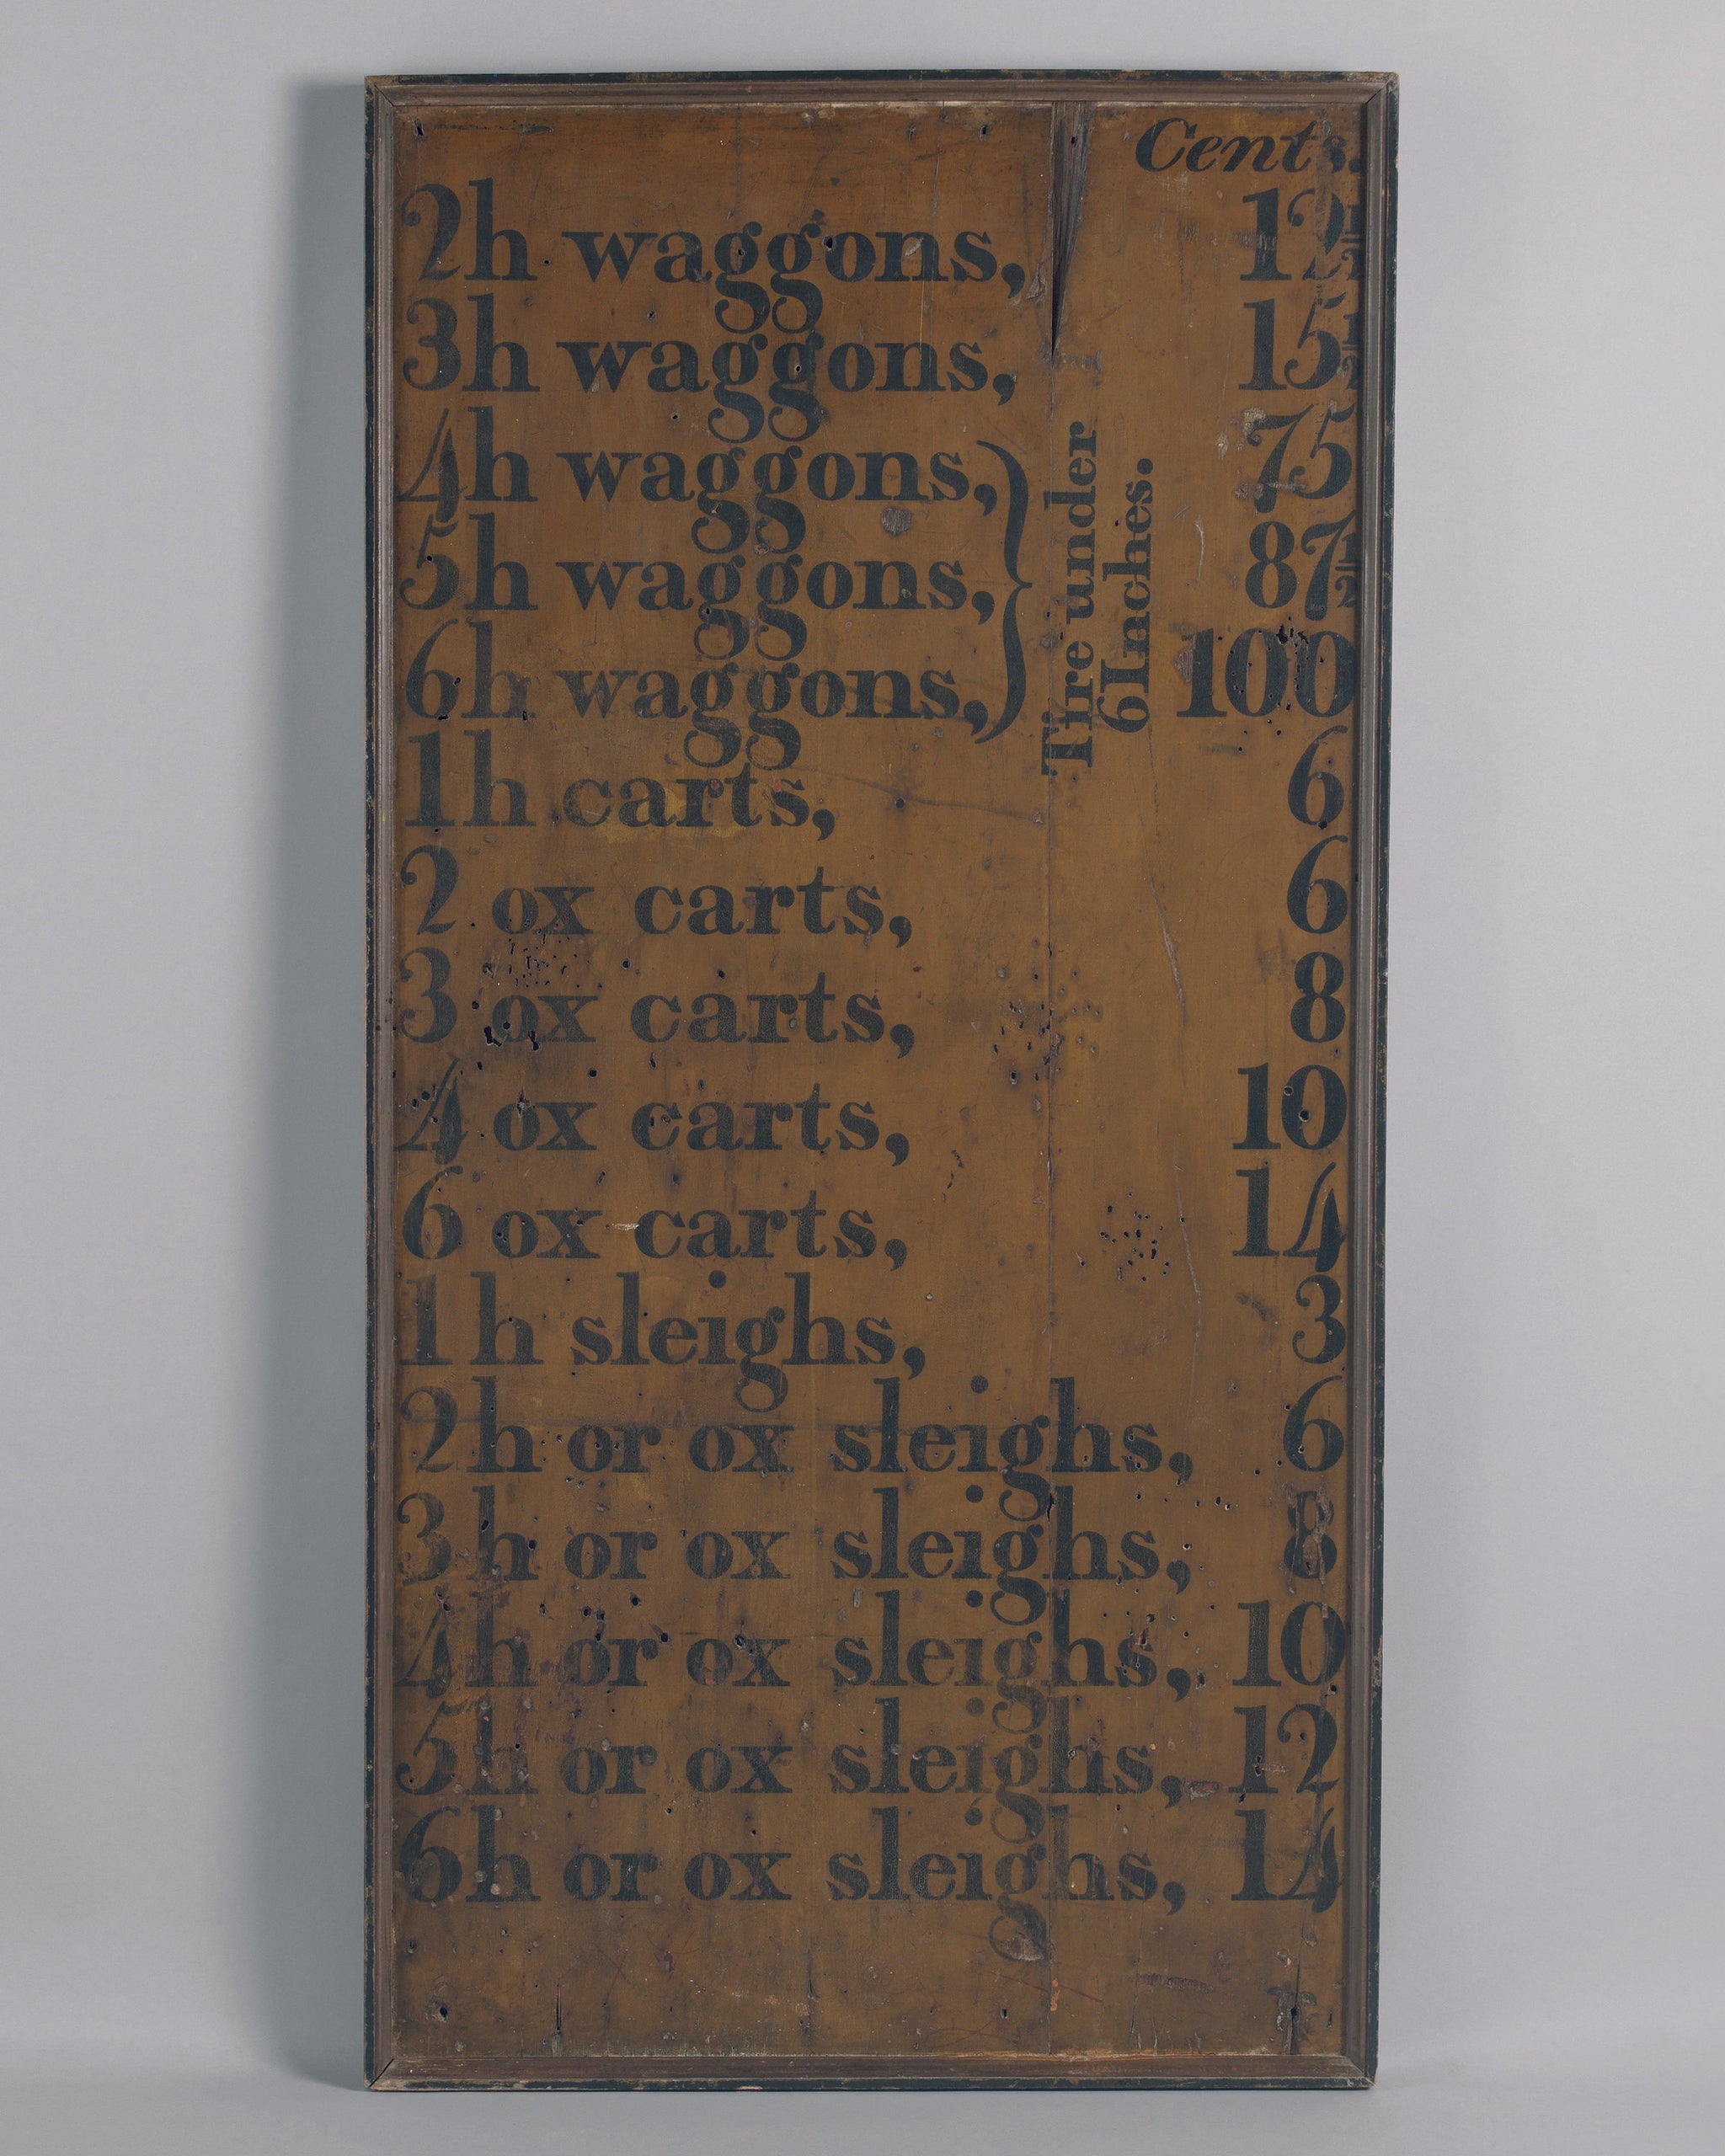 Cents.
2h waggons, 12½
3h waggons, 15½
4h waggons, 75
5h waggons, 87½
6h waggons, 100
Tire under
6 Inches.
1h carts, 6
2 ox carts, 6
3 ox carts, 8
4 ox carts, 10
6 ox carts, 14
1h sleighs, 3
2h or ox sleighs, 6
3h or ox sleighs, 8
4h or ox sleighs, 10
5h or ox sleighs, 12
6h or ox sleighs, 14